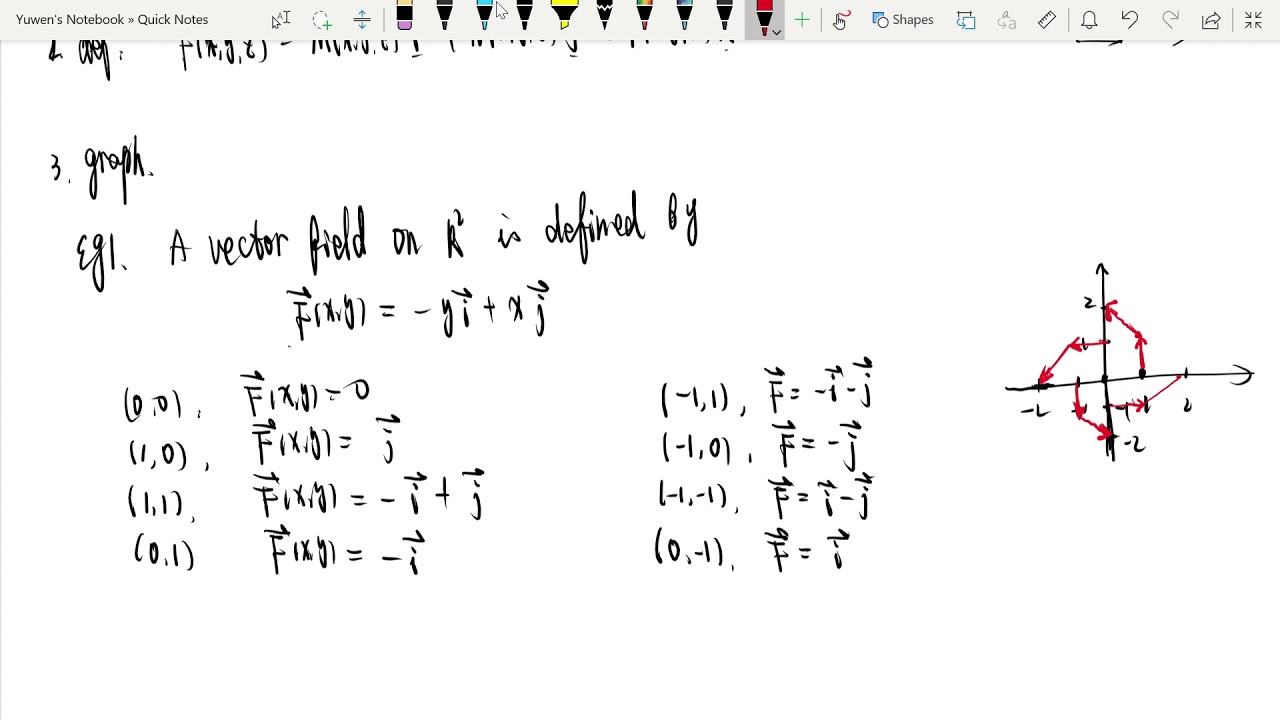 Yuwen's Notebook » Quick Notes
Shapes
2. def: F(x,y,z) =
3. graph.
Eg1. A vector field on R² is defined by
F⃗(x,y) = -y i⃗ + x j⃗
(0,0), F⃗(x,y) = 0
(1,0), F⃗(x,y) = j⃗
(1,1), F⃗(x,y) = -i⃗ + j⃗
(0,1) F⃗(x,y) = -i⃗
(-1,1), F⃗ = -i⃗ - j⃗
(-1,0), F⃗ = -j⃗
(-1,-1), F⃗ = i⃗ - j⃗
(0,-1), F⃗ = i⃗
2
-2 2
-2